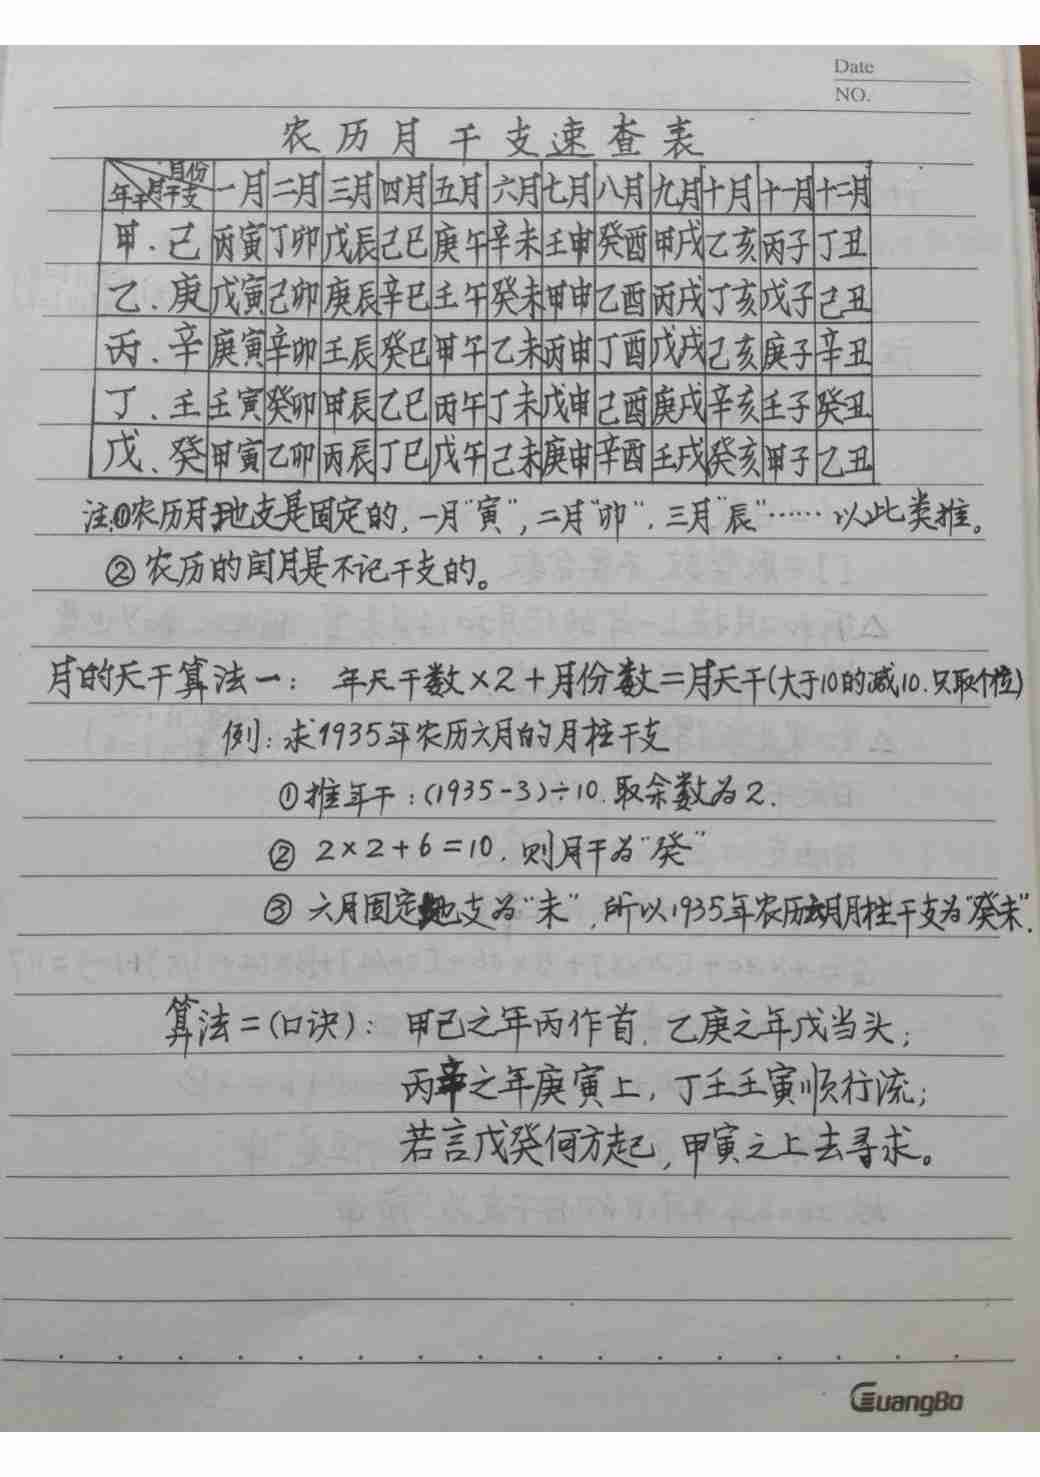 Date
NO.
农历月干支速查表
年干 月干支 月份 一月 二月 三月 四月 五月 六月 七月 八月 九月 十月 十一月 十二月
甲、己 丙寅 丁卯 戊辰 己巳 庚午 辛未 壬申 癸酉 甲戌 乙亥 丙子 丁丑
乙、庚 戊寅 己卯 庚辰 辛巳 壬午 癸未 甲申 乙酉 丙戌 丁亥 戊子 己丑
丙、辛 庚寅 辛卯 壬辰 癸巳 甲午 乙未 丙申 丁酉 戊戌 己亥 庚子 辛丑
丁、壬 壬寅 癸卯 甲辰 乙巳 丙午 丁未 戊申 己酉 庚戌 辛亥 壬子 癸丑
戊、癸 甲寅 乙卯 丙辰 丁巳 戊午 己未 庚申 辛酉 壬戌 癸亥 甲子 乙丑
注:①农历月地支是固定的,一月"寅",二月"卯",三月"辰"……以此类推。
②农历的闰月是不记干支的。
月的天干算法一: 年天干数×2+月份数=月天干(大于10的减10.只取个位)
例:求1935年农历六月的月柱干支
①推年干:(1935-3)÷10.取余数为2.
② 2×2+6=10. 则月干为"癸"
③ 六月固定地支为"未",所以1935年农历六月月柱干支为"癸未".
算法二(口诀): 甲己之年丙作首,乙庚之年戊当头;
丙辛之年庚寅上,丁壬壬寅顺行流;
若言戊癸何方起,甲寅之上去寻求。
GuangBo